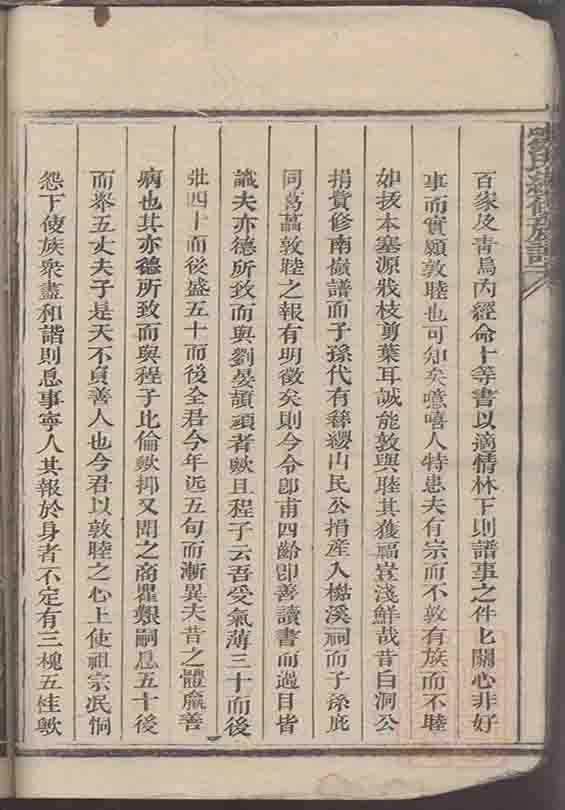 百家及青烏內經命卜等書以適情林下則譜事之件匕關心非好
事而實願敦睦也可知矣噫嘻人特患夫有宗而不敦有族而不睦
如拔本塞源戕枝剪葉耳誠能敦與睦其獲福豈淺鮮哉昔白洞公
捐貲修南嶽譜而子孫代有簪纓山民公捐產入樾溪祠而子孫庇
同葛藟敦睦之報有明徵矣則今令卽甫四齡卽善讀書而過目皆
識夫亦德所致而與劉晏頡頏者歟且程子云吾受氣薄三十而後
壯四十而後盛五十而後全君今年近五旬而漸異夫昔之體羸善
病也其亦德所致而與程子比倫歟抑又聞之商瞿艱嗣息五十後
而舉五丈夫子是天不負善人也今君以敦睦之心上使祖宗泯恫
怨下使族衆盡和諧則息事寧人其報於身者不定有三槐五桂歟